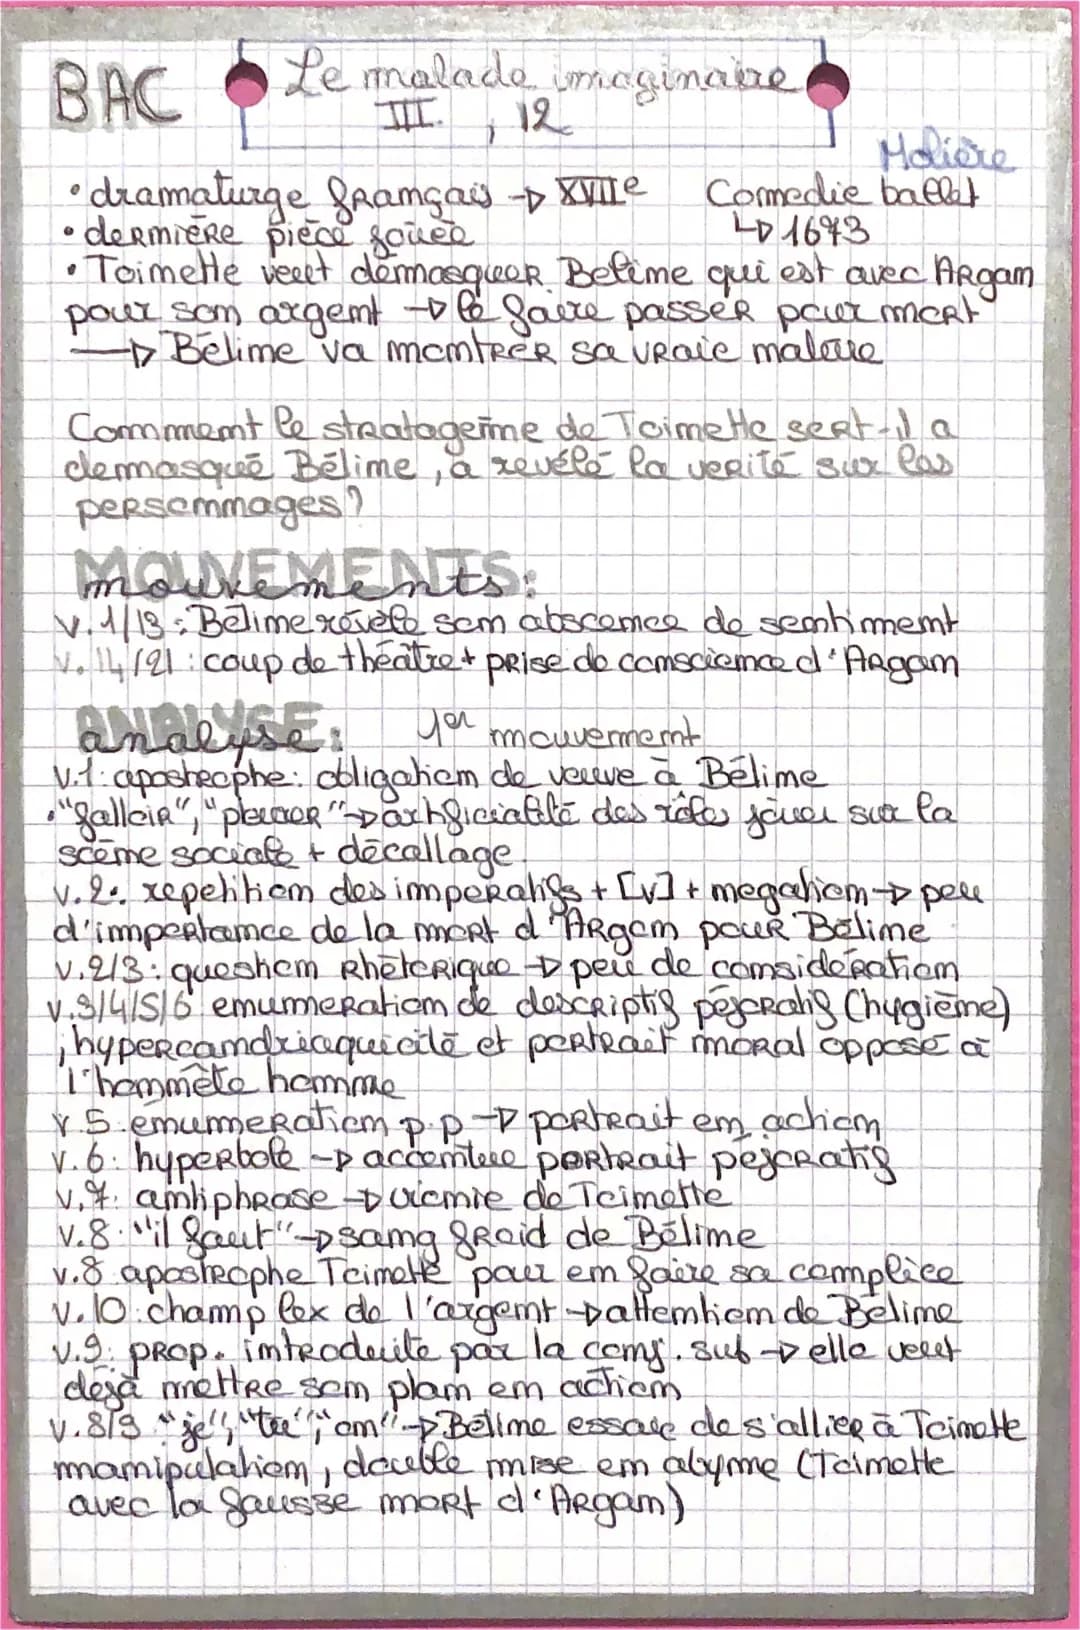 BAC
Le malade imaginaire
III. , 12
Molière
• dramaturge français → XVIIe Comedie ballet
• dernière pièce jouée ↳ 1673
• Toinette veut démasquer Béline qui est avec Argan
pour son argent → le faire passer pour mort
→ Béline va montrer sa vraie nature
Comment le stratagème de Toinette sert-il a
demasqué Béline, a révélé la verité sur les
personnages?
MOUVEMENTS:
mouvements:
v.1/13 : Béline révèle son abscence de sentiment
v.14/21 : coup de théâtre + prise de conscience d'Argan
ANALYSE:
analyse: 1er mouvement
v.1: apostrophe: obligation de veuve à Béline
• "falloir", "pleurer" → artificialité des rôles jouer sur la
scène sociale + décallage.
v.2: repetition des imperatifs + [v] + negation → peu
d'importance de la mort d'Argan pour Béline
v.2/3: question rhétorique → peu de considération
v.3/4/5/6 enumeration de descriptif péjoratif (hygiène)
, hypercondriaquicité et portrait moral opposé à
l'honnête homme
v.5. énumeration p.p → portrait en action
v.6: hyperbole → accentue portrait péjoratif
v.7: antiphrase → ironie de Toinette
v.8: "il faut" → sang froid de Béline
v.8 apostrophe Toinette pour en faire sa complice
v.10: champ lex de l'argent → attention de Béline
v.9: prop. introduite par la conj. sub → elle veut
déjà mettre son plan en action
v.8/9 "je", "tu", "on" → Béline essaie de s'allier à Toinette
manipulation, double mise en abyme (Toinette
avec la fausse mort d'Argan)